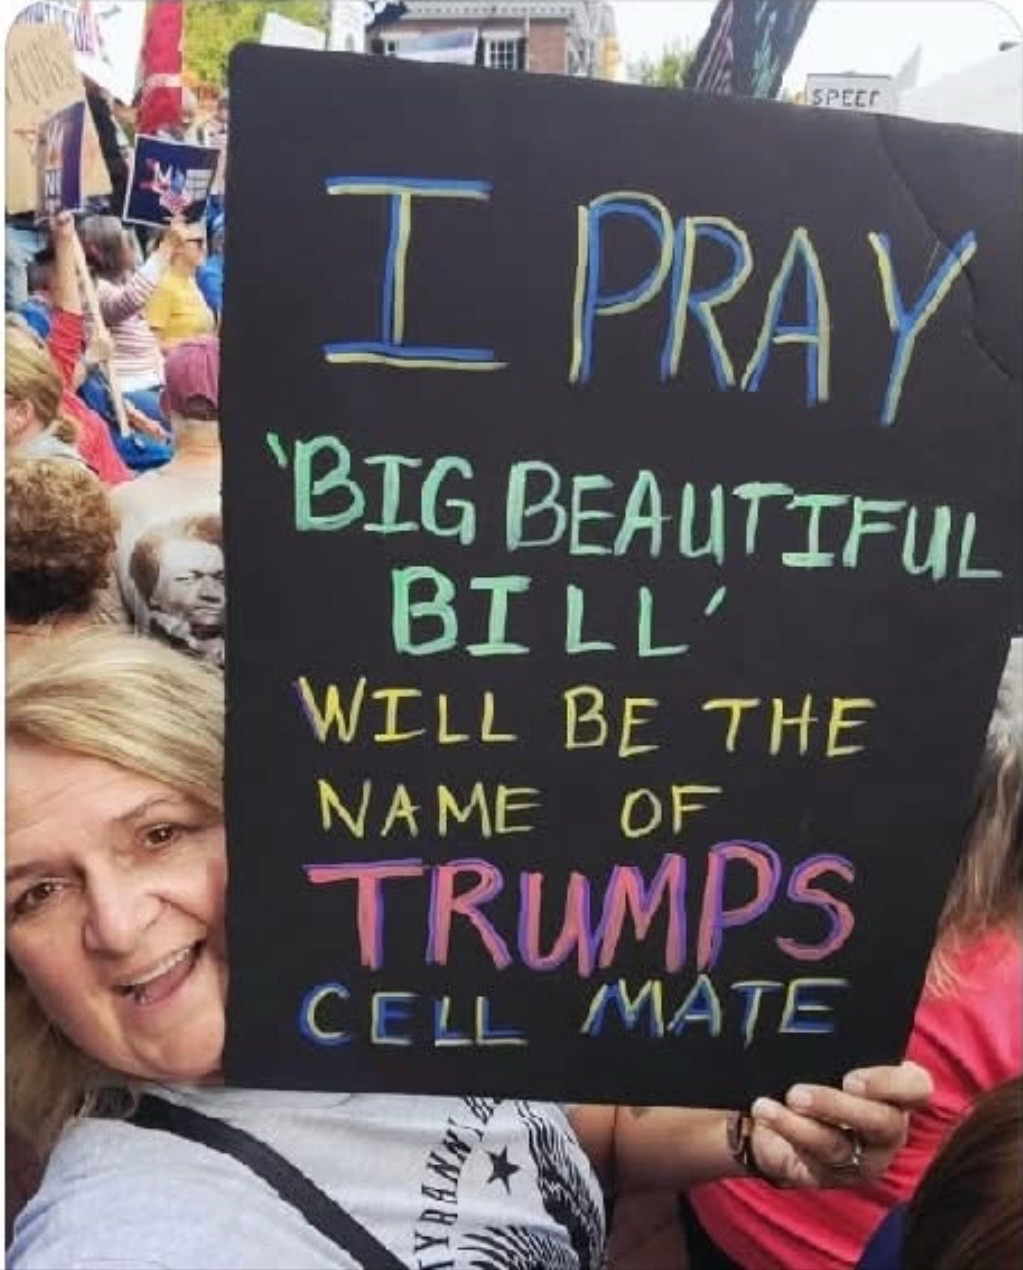 I PRAY
'BIG BEAUTIFUL
BILL'
WILL BE THE
NAME OF
TRUMPS
CELL MATE
SPEED